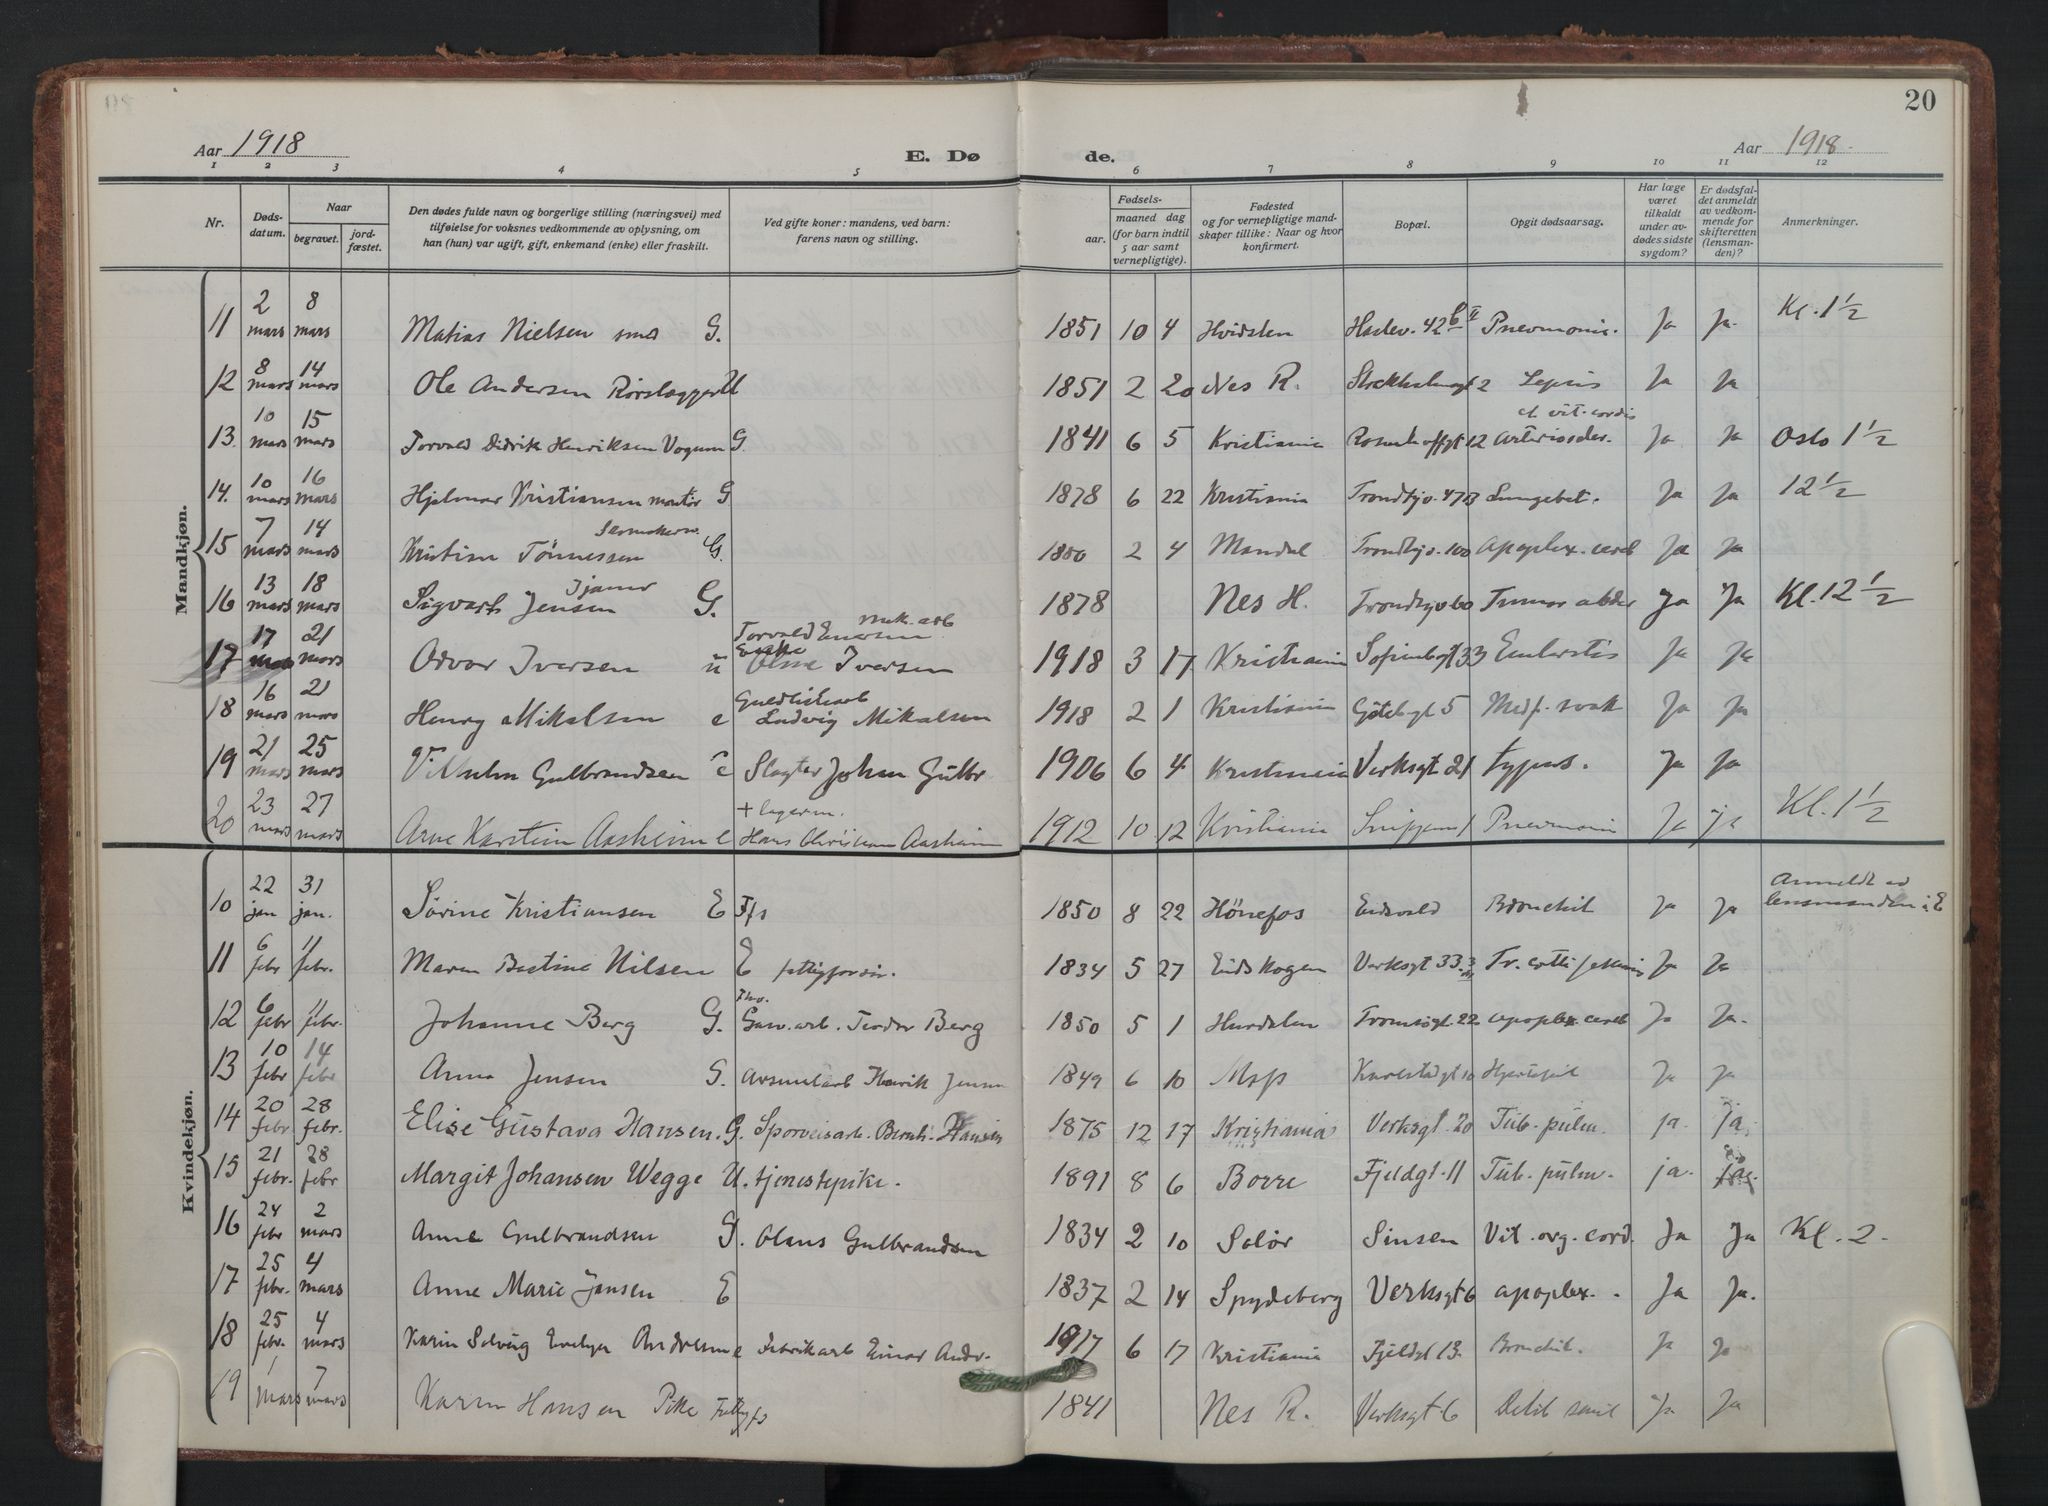 20
Aar 1918
E. Dø de.
Aar 1918.
1 2 3 4 5 6 7 8 9 10 11 12
Nr.
Døds-
datum.
Naar
begravet.
jord-
fæstet.
Den dødes fulde navn og borgerlige stilling (næringsvei) med
tilføielse for voksnes vedkommende av oplysning, om
han (hun) var ugift, gift, enkemand (enke) eller fraskilt.
Ved gifte koner: mandens, ved barn:
farens navn og stilling.
Fødsels-
aar.
maaned dag
(for barn indtil
5 aar samt
vernepligtige).
Fødested
og for vernepligtige mand-
skaper tillike: Naar og hvor
konfirmert.
Bopæl.
Opgit dødsaarsag.
Har læge
været
tilkaldt
under av-
dødes sidste
sygdom?
Er dødsfal-
det anmeldt
av vedkom-
mende for
skifteretten
(lensman-
den)?
Anmerkninger.
Mandkjøn.
11 2 mars 8 mars Matias Nielsen smed G. 1851 10 4 Hvidsten Haslev. 42 b II Pneumonie. Ja Ja. Kl. 1½
12 8 mars 14 mars Ole Andersen Rørlægger U 1851 2 20 Nes R. Stockholmsgt 2 Sepsis Ja Ja
13. 10 mars 15 mars Torvald Didrik Henriksen Vognm G. 1841 6 5 Kristiania Rosenhoffgt 12 Arterioscler. et vit. cordis Ja Ja Oslo 1½
14. 10 mars 16 mars Hjalmar Kristiansen montør G 1878 6 22 Kristiania Trondhjv. 47B Lungebet. Ja Ja 12½
15 7 mars 14 mars Kristian Tönnessen G. 1850 2 4 Mandal Trondhjv. 100 Apoplex. cereb Ja Ja
16 13 mars 18 mars Sigvart Jensen G. 1878 Nes H. Trondhjv 60 Tumor abdom Ja Ja Kl. 12½
17 17 mars 21 mars Odvar Iversen u Torvald Enersen mek. arb Iversen 1918 3 17 Kristiania Sofienbgt 33 Ja Ja
18 16 mars 21 mars Henry Mikalsen e Guldlistearb Ludvig Mikalsen 1918 2 1 Kristiania Götebgt 5 Medf. svak Ja Ja
19 21 mars 25 mars Vilhelm Gulbrandsen e Slagter Johan Gulbr 1906 6 4 Kristiania Verksgt 21 typus. Ja Ja
20 23 mars 27 mars Arne Karstein Aasheim e + lagerm. Hans Christian Aasheim 1912 10 12 Kristiania Pneumoni Ja Ja Kl. 1½
Kvindekjøn.
10 22 jan 31 jan. Sörine Kristiansen E Ffs 1850 8 22 Hönefos Eidsvold Bronchit Ja Ja Anmeldt av lensmanden i E
11 6 febr 11 febr. Maren Bestine Nilsen E fattigforsör. 1834 5 27 Eidskogen Verksgt 33 Ja Ja
12 6 febr 11 febr. Johanne Berg G. Garv. arb. Teodor Berg 1850 5 1 Hurdalen Tromsögt. 22 apoplex. cereb Ja Ja.
13 10 febr 14 febr Anna Jensen G. Arsenalarb Henrik Jensen 1849 6 10 Moss Karlstadgt 10 Hjertefeil Ja Ja
14 20 febr 28 febr. Elise Gustava Hansen. G. Sporveisarb. Bernh. Hansen 1875 12 17 Kristiania Verksgt. 20 Tub. pulm. ja. ja.
15 21 febr. 28 febr Margit Johansen Wegge U. tjenestepike. 1891 8 6 Borre Fjeldgt. 11 Tub. pulm. ja. ja.
16 24 febr 2 mars Anne Gulbrandsen G. Olaus Gulbrandsen 1834 2 10 Solör Sinsen Vit. org. cord. Ja Ja Kl. 2.
17 25 febr. 4 mars Anne Marie Jensen E 1837 2 14 Spydeberg Verksgt 6 apoplex. Ja Ja.
18 25 febr. 4 mars Karin Solveig Evelyn Andresen e Fabrikarb Einar Andr. 1917 6 17 Kristiania Fjeldgt 13. Bronchit. Ja Ja
19 1 mars 7 mars Karen Hansen Pike Fattigfs 1841 Nes R. Verksgt 6 Debil senil Ja Ja